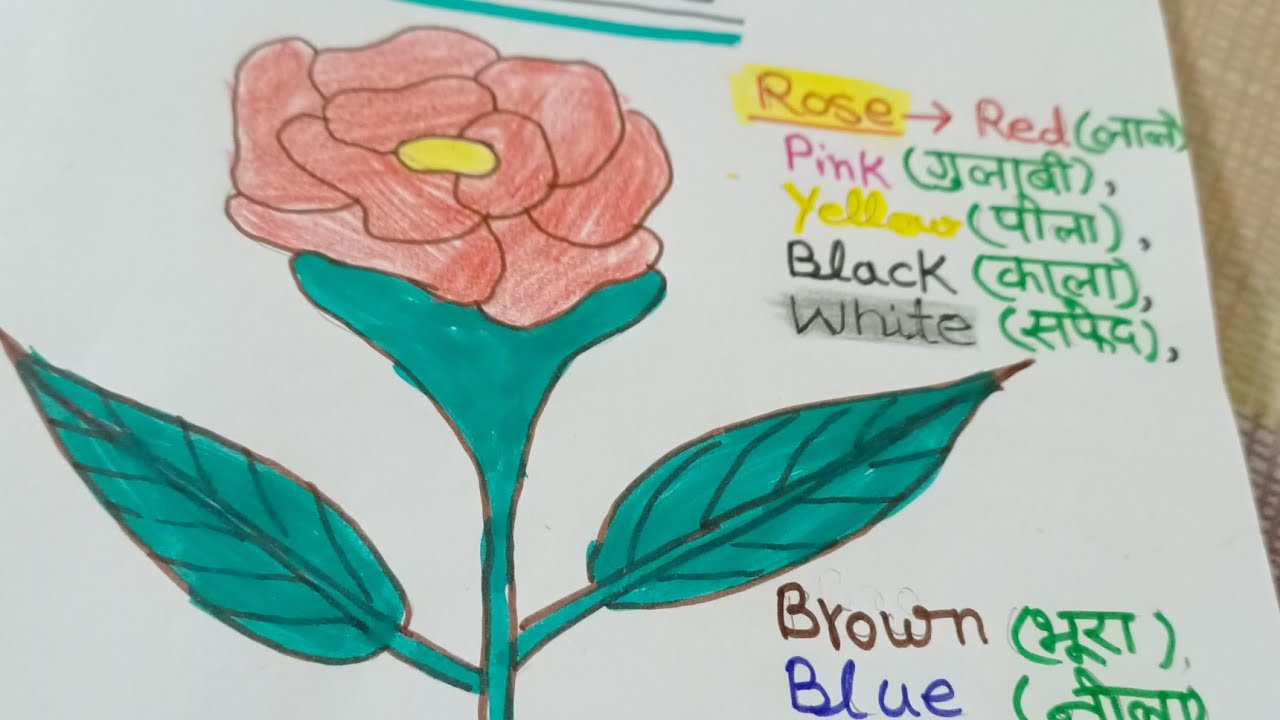 Rose → Red (लाल)
Pink (गुलाबी),
Yellow (पीला),
Black (काला),
White (सफेद),
Brown (भूरा),
Blue (नीला)